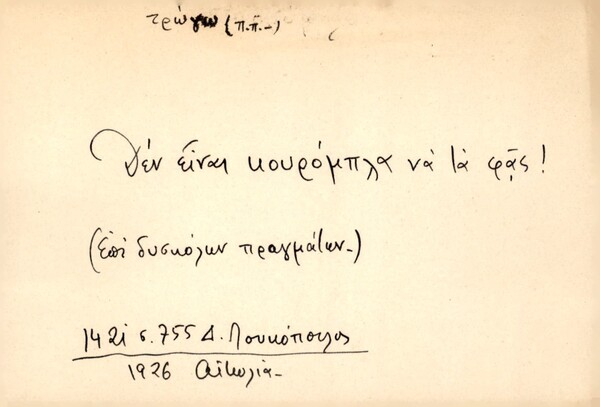 τρώγω (π.π.-)
Δέν εἶναι κουρόμπλα νὰ τὰ φᾷς!
(Ἐπὶ δυσκόλων πραγμάτων-)
1421 σ. 755 Δ. Λουκόπουλος
1926 Αἰτωλία-